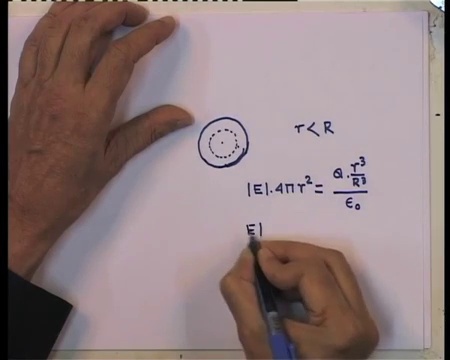 r < R
|E|. 4π r² = Q . r³/R³ / ε₀
E|